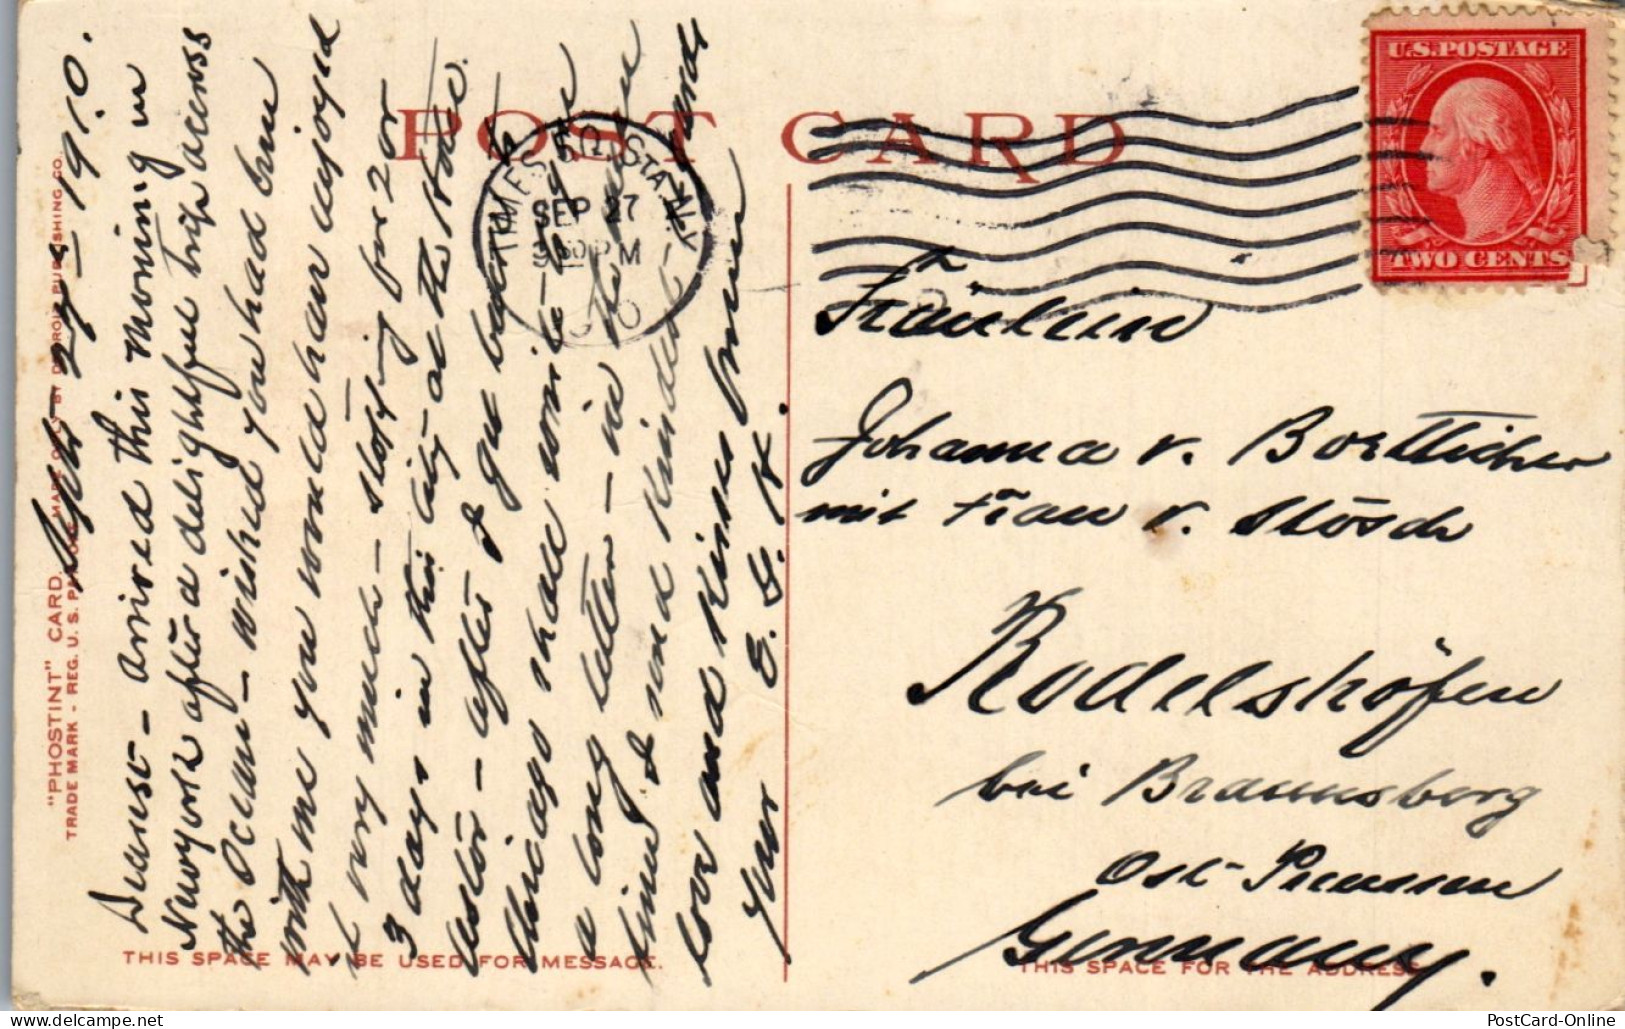 POST CARD
"PHOSTINT" CARD
TRADE MARK - REG. U. S. PAT. OFF. MADE ONLY BY DETROIT PUBLISHING CO.
Sept- 27 - 1910.
Dearest - Arrived this morning in
Newyork after a delightful trip across
the Ocean - wished you had been
with me you would have enjoyed
it very much - stopping for 2 or
3 days in this city - at the Hotel
Astor - after I get back to
Chicago shall write you
a long letter - in the mean
time I send kindest and
love and kisses
Your E. G. K.
TIMES SQ. STA. N.Y.
SEP 27
9 30 PM
1910
U.S. POSTAGE
TWO CENTS
Fräulein
Johanna v. Boetticher
mit Frau v. Stösch
Rodelshöfen
bei Braunsberg
Ost-Preussen
Germany.
THIS SPACE MAY BE USED FOR MESSAGE.
THIS SPACE FOR THE ADDRESS
PostCard-Online